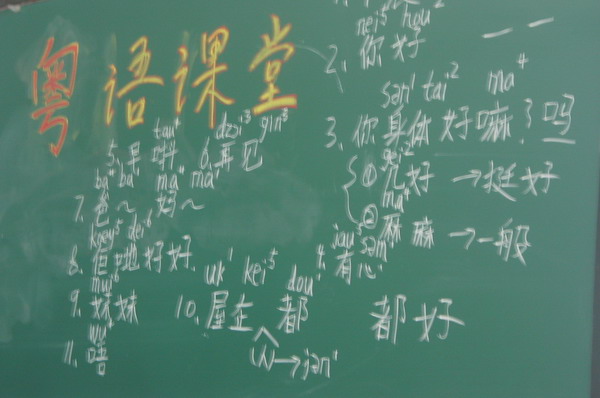 粤语课堂
nei⁵ hou²
2. 你好
sən¹ tai² ma⁴
3. 你身体好嘛？吗
① 几好 → 挺好
ma⁴
② 麻麻 → 一般
jau⁵ səm¹
4. 有心
5. 早
6. 再见
ba⁴ ba¹ ma⁴ ma¹
7. 爸～ 好～
dei⁶
8. 佢哋好好
mui⁶
9. 妹妹
uk¹ kei⁵ dou¹
10. 屋企 都 都好
→ jən¹
11. 唔